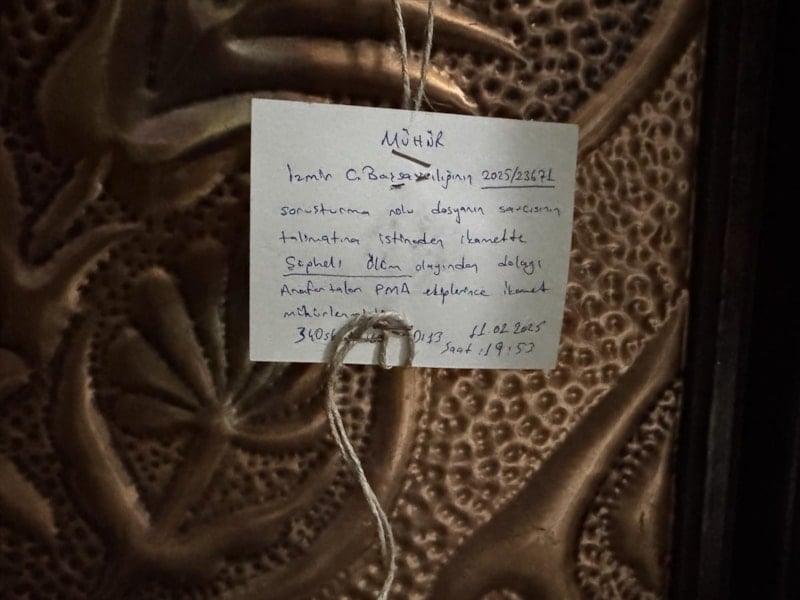 MÜHÜR
İzmir C. Başsavcılığının 2025/23671
soruşturma nolu dosyanın savcısının
talimatına istineden ikamette
Şüpheli Ölüm olayından dolayı
Anafartalar PMA ekiplerince ikamet
11.02.2025
Saat : 19:53